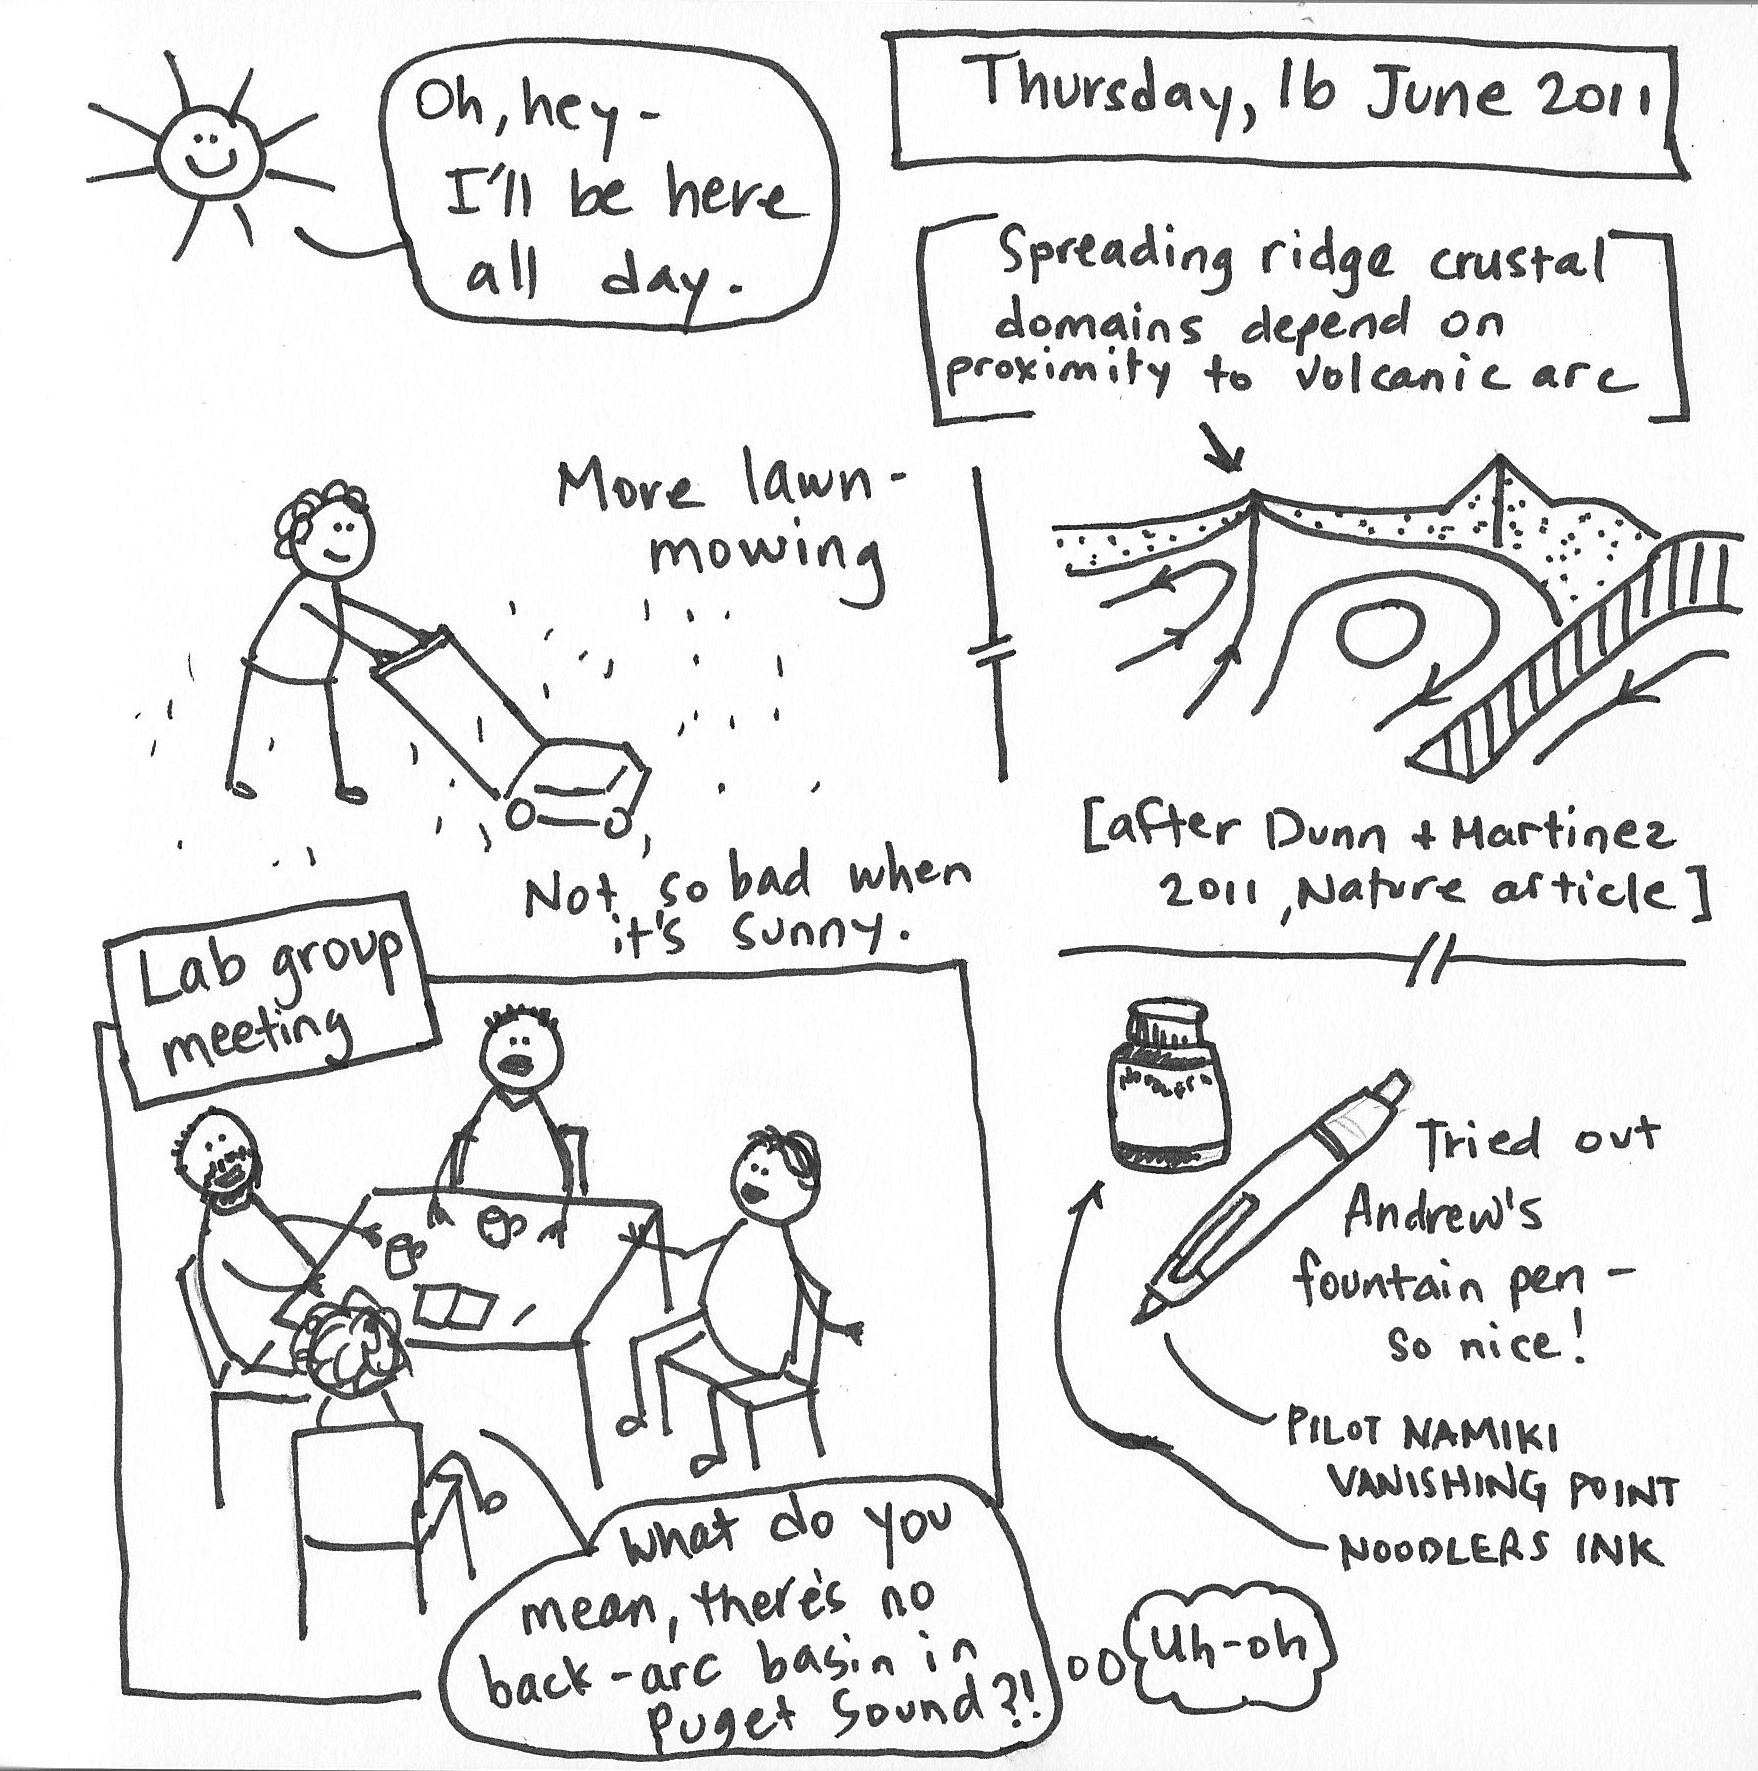 Oh, hey-
I'll be here
all day.
Thursday, 16 June 2011
Spreading ridge crustal
domains depend on
proximity to volcanic arc
More lawn-
mowing
Not so bad when
it's sunny.
[after Dunn + Martinez
2011, Nature article]
Lab group
meeting
What do you
mean, there's no
back-arc basin in
Puget Sound?!
Uh-oh
Tried out
Andrew's
fountain pen -
so nice!
PILOT NAMIKI
VANISHING POINT
NOODLERS INK